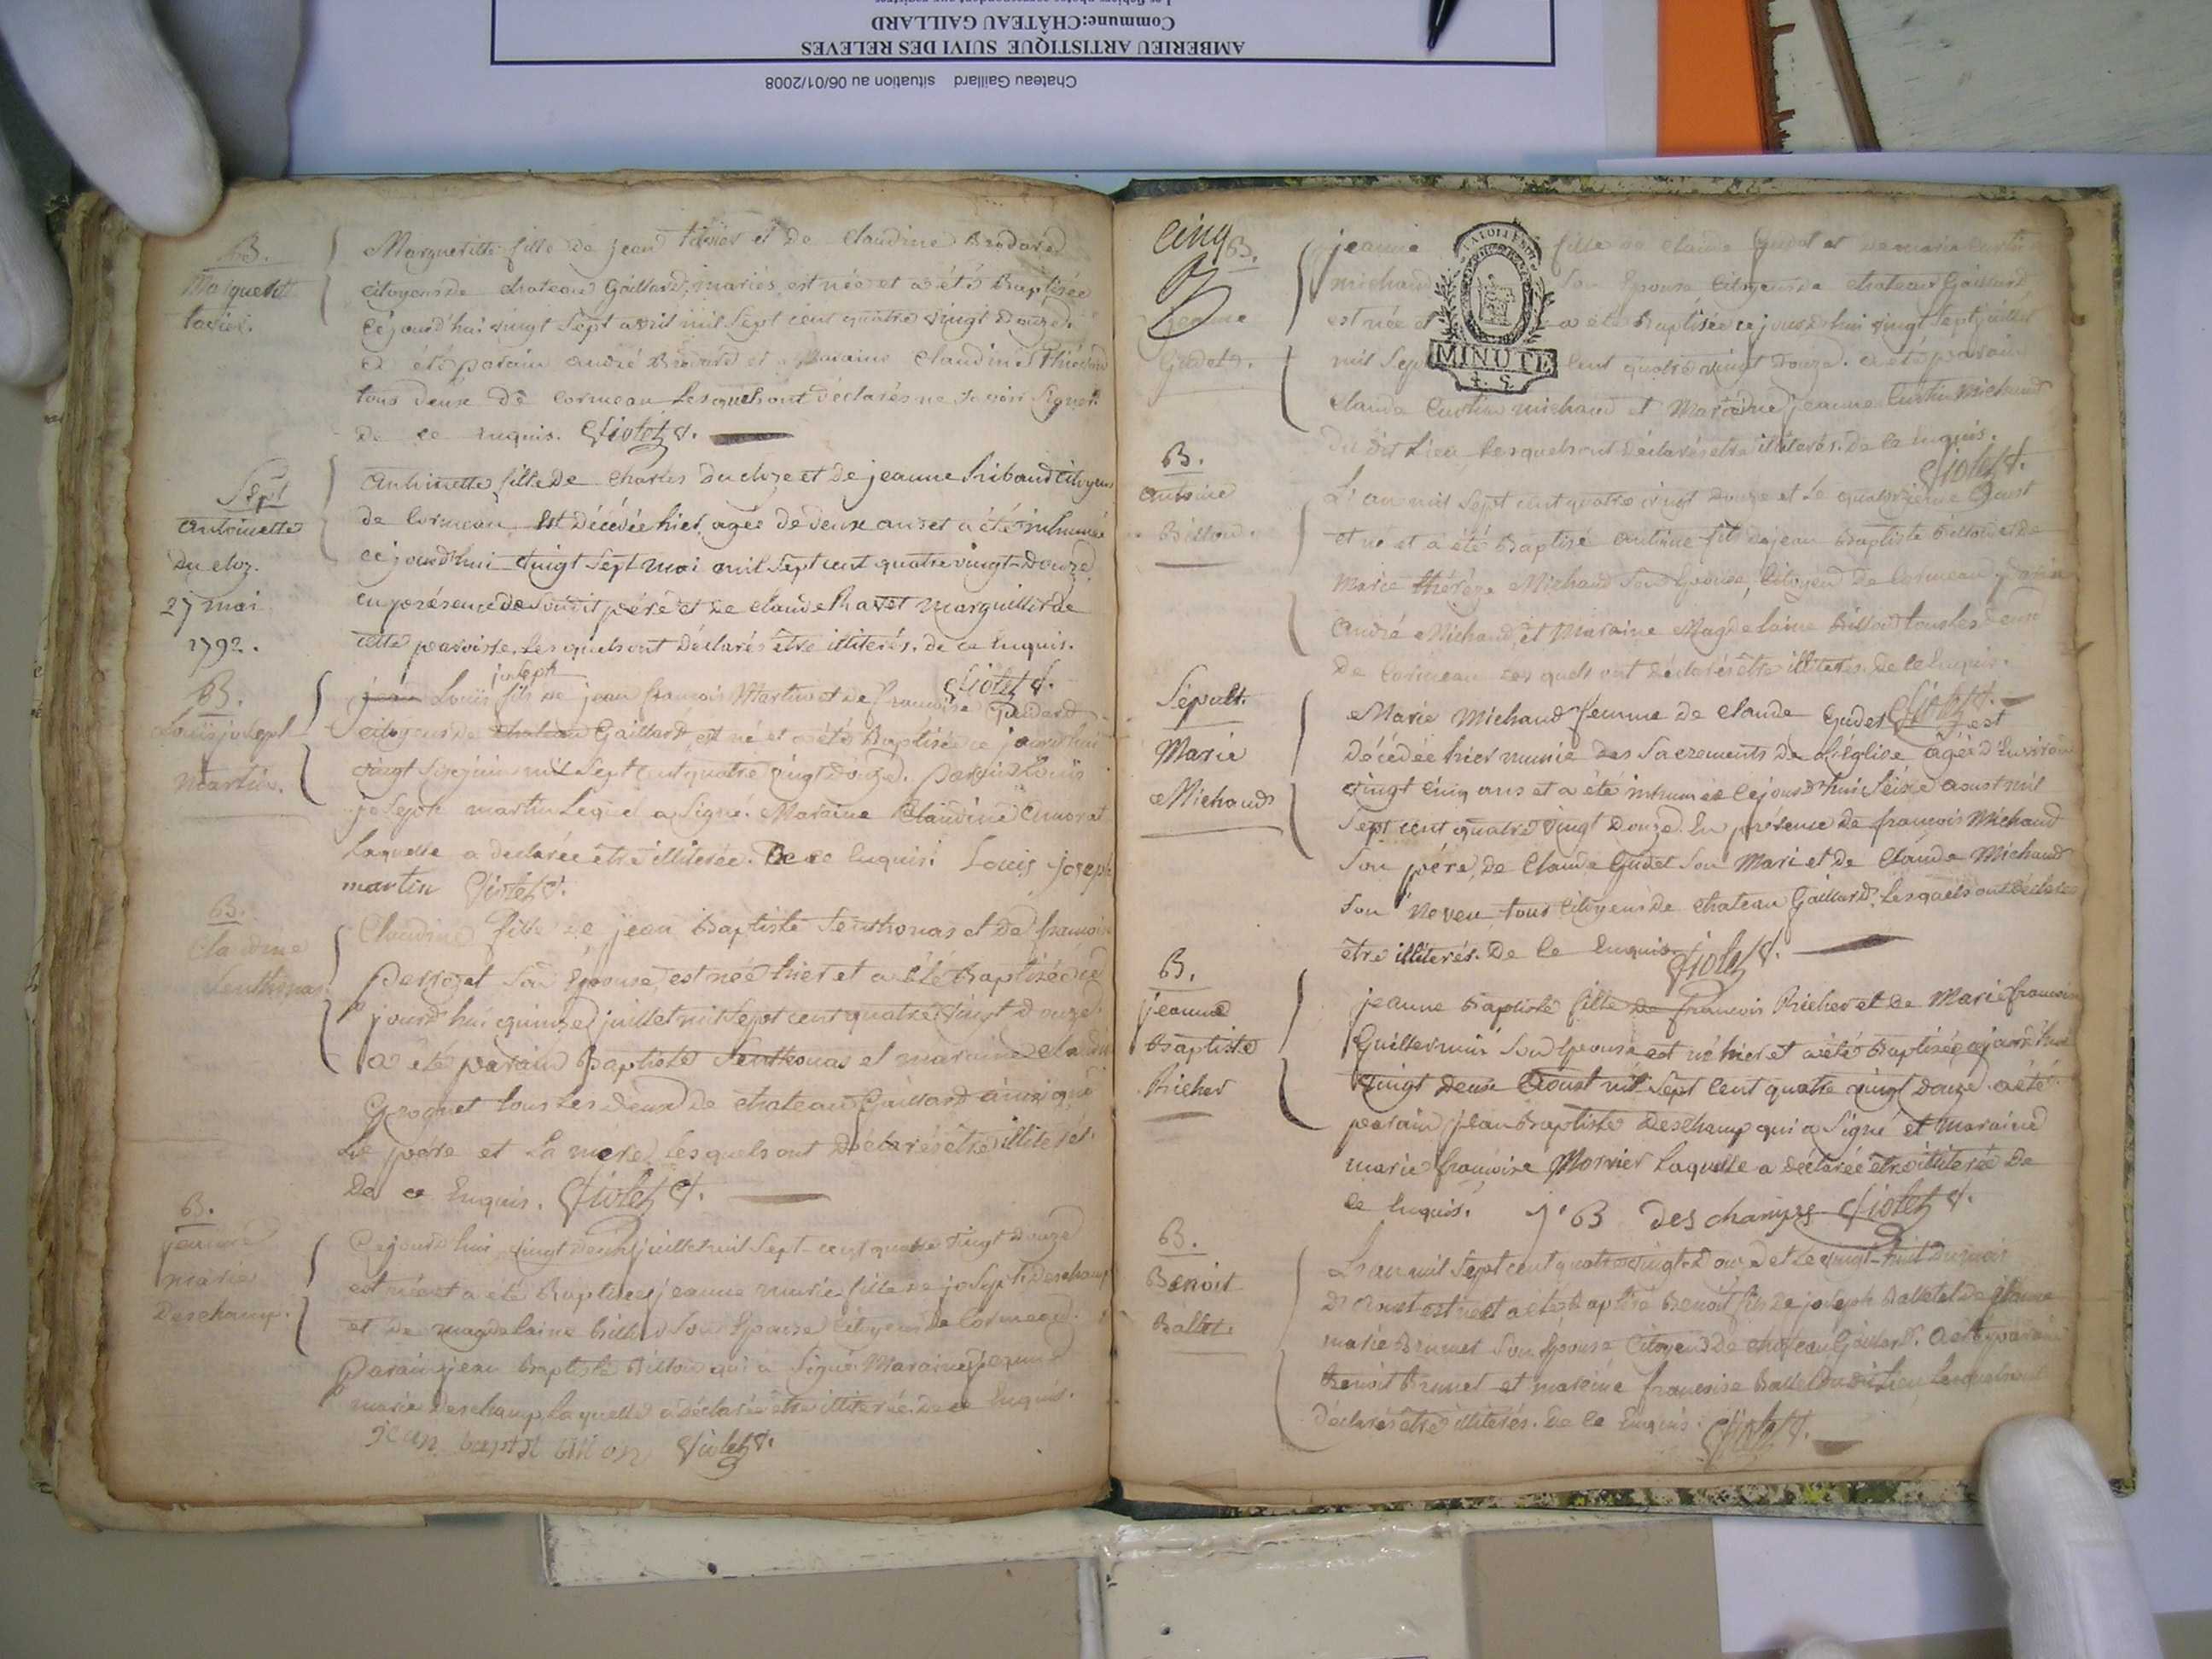 Les fichiers photos correspondent aux registres
Commune:CHÂTEAU GAILLARD
AMBERIEU ARTISTIQUE SUIVI DES RELEVES
Chateau Gaillard situation au 06/01/2008
B.
Marguerite
Margueritte fille de jean et de Claudine Brodard
citoyens de chateau Gaillard, mariés, est née et a été Baptisée
cejourd'hui vingt sept avril mil sept cent quatre vingt douze.
a été parain andré Brodard et maraine Claudine
tous deux de Cormoau lesquels ont déclarés ne savoir signer
de ce enquis. Violet c.
Sept
antoinette
du cloz.
27 mai
1792.
antoinette fille de Charles du cloze et de jeanne citoyens
de Cormoau est décédée hier, agée de deux ans et a été inhumée
cejourd'hui vingt sept mai mil sept cent quatre vingt-douze
en présence de son dit pére et de claude marguillier de
cette paroisse. Les quels ont déclarés être illiterés. de ce enquis.
Violet c.
B.
Louis joseph
Martin.
joseph
jean Louis fils de jean françois Martin et de françoise
citoyens de chateau Gaillard, est né et a été Baptisée ce jourd'hui
vingt six juin mil sept cent quatre vingt douze. parain Louis
joseph martin lequel a signé. Maraine Claudine
laquelle a declarée être illiterée. De ce enquis. Louis joseph
martin Violet c.
B.
Claudine
Senthonas
Claudine fille de jean Baptiste Senthonas et de françoise
son épouse, est née hier et a été Baptisée ce
jourd'hui quinze juillet mil sept cent quatre vingt douze.
a été parain Baptiste Senthonas et maraine
tous les deux de chateau Gaillard ainsi que
le pére et la mére lesquels ont déclarés être illiterés.
de ce enquis. Violet c.
B.
jeanne
marie
Deschamp.
Cejourd'hui vingt deux juillet mil sept-cent quatre vingt douze
est née et a été Baptisée jeanne marie fille de joseph Deschamp
et de magdelaine Billion son épouse citoyens de Cormoau.
Parain jean Baptiste Billion qui a signé. Maraine jeanne
marie Deschamp laquelle a déclarée être illiterée. De ce enquis.
jean baptist billion Violet c.
cinq
B.
jeanne
Gudet.
MINUTE
4. S.
jeanne fille de claude Gudet et de marie
michaud son épouse citoyens de chateau Gaillard
est née et a été Baptisée ce jourd'hui vingt sept juillet
mil sept cent quatre vingt douze. a été parain
claude michaud et Maraine jeanne michaud
du dit Lieu lesquels ont déclarés etre illiterés. De ce enquis.
Violet c.
B.
antoine
Billion.
L'an mil sept cent quatre vingt douze et le quatorzieme Aoust
est né et a été Baptisé antoine fils de jean Baptiste Billion et de
Marie thérèze Michaud son épouse, citoyens de Cormoau parain
André Michaud, et Maraine Magdelaine Billion tous les deux
de Cormoau Les quels ont déclarés être illiterés. De ce enquis.
Violet c.
Sépult.
Marie
Michaud
Marie Michaud femme de claude Gudet est
décédée hier munie des Sacrements de L'église, agée d'environ
vingt cinq ans et a été inhumée cejourd'hui seize aoust mil
sept cent quatre vingt douze. En présence de françois Michaud
son pére, de Claude Gudet son mari et de Claude Michaud
son neveu tous citoyens de chateau Gaillard. Lesquels ont déclarés
etre illiterés. De ce enquis. Violet c.
B.
jeanne
Baptiste
Richer
jeanne Baptiste fille de francois Richer et de Marie francoise
Guillermin son épouse est né hier et a été Baptisée cejourd'hui
vingt deux Aoust mil sept cent quatre vingt douze. a été
parain jean Baptiste Deschamp qui a signé et maraine
marie francoise Mornier laquelle a déclarée etre illiterée de
ce enquis. j' B des champs Violet c.
B.
Benoit
Ballet.
L'an mil sept cent quatre vingt-douze et le vingt-huit du mois
D'Aoust est né et a été Baptisé Benoit fils de joseph Ballet et de jeanne
marie Brunet son épouse citoyens de chateau Gaillard. A été parain
Benoit Brunet et maraine francoise Ballet du dit Lieu lesquels ont
déclarés etre illiterés. De ce enquis. Violet c.